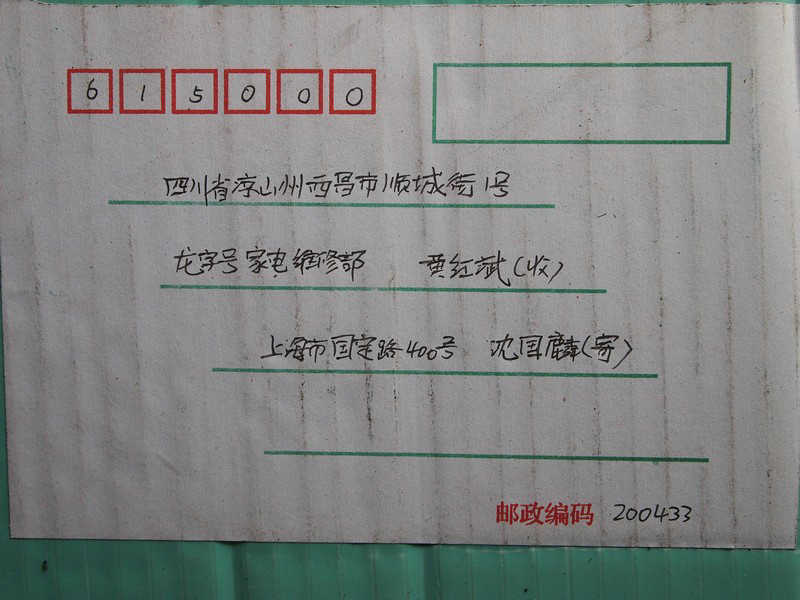 615000
四川省凉山州西昌市顺城街1号
龙字号家电维修部 黄红斌(收)
上海市国定路400号 沈国麟(寄)
邮政编码 200433